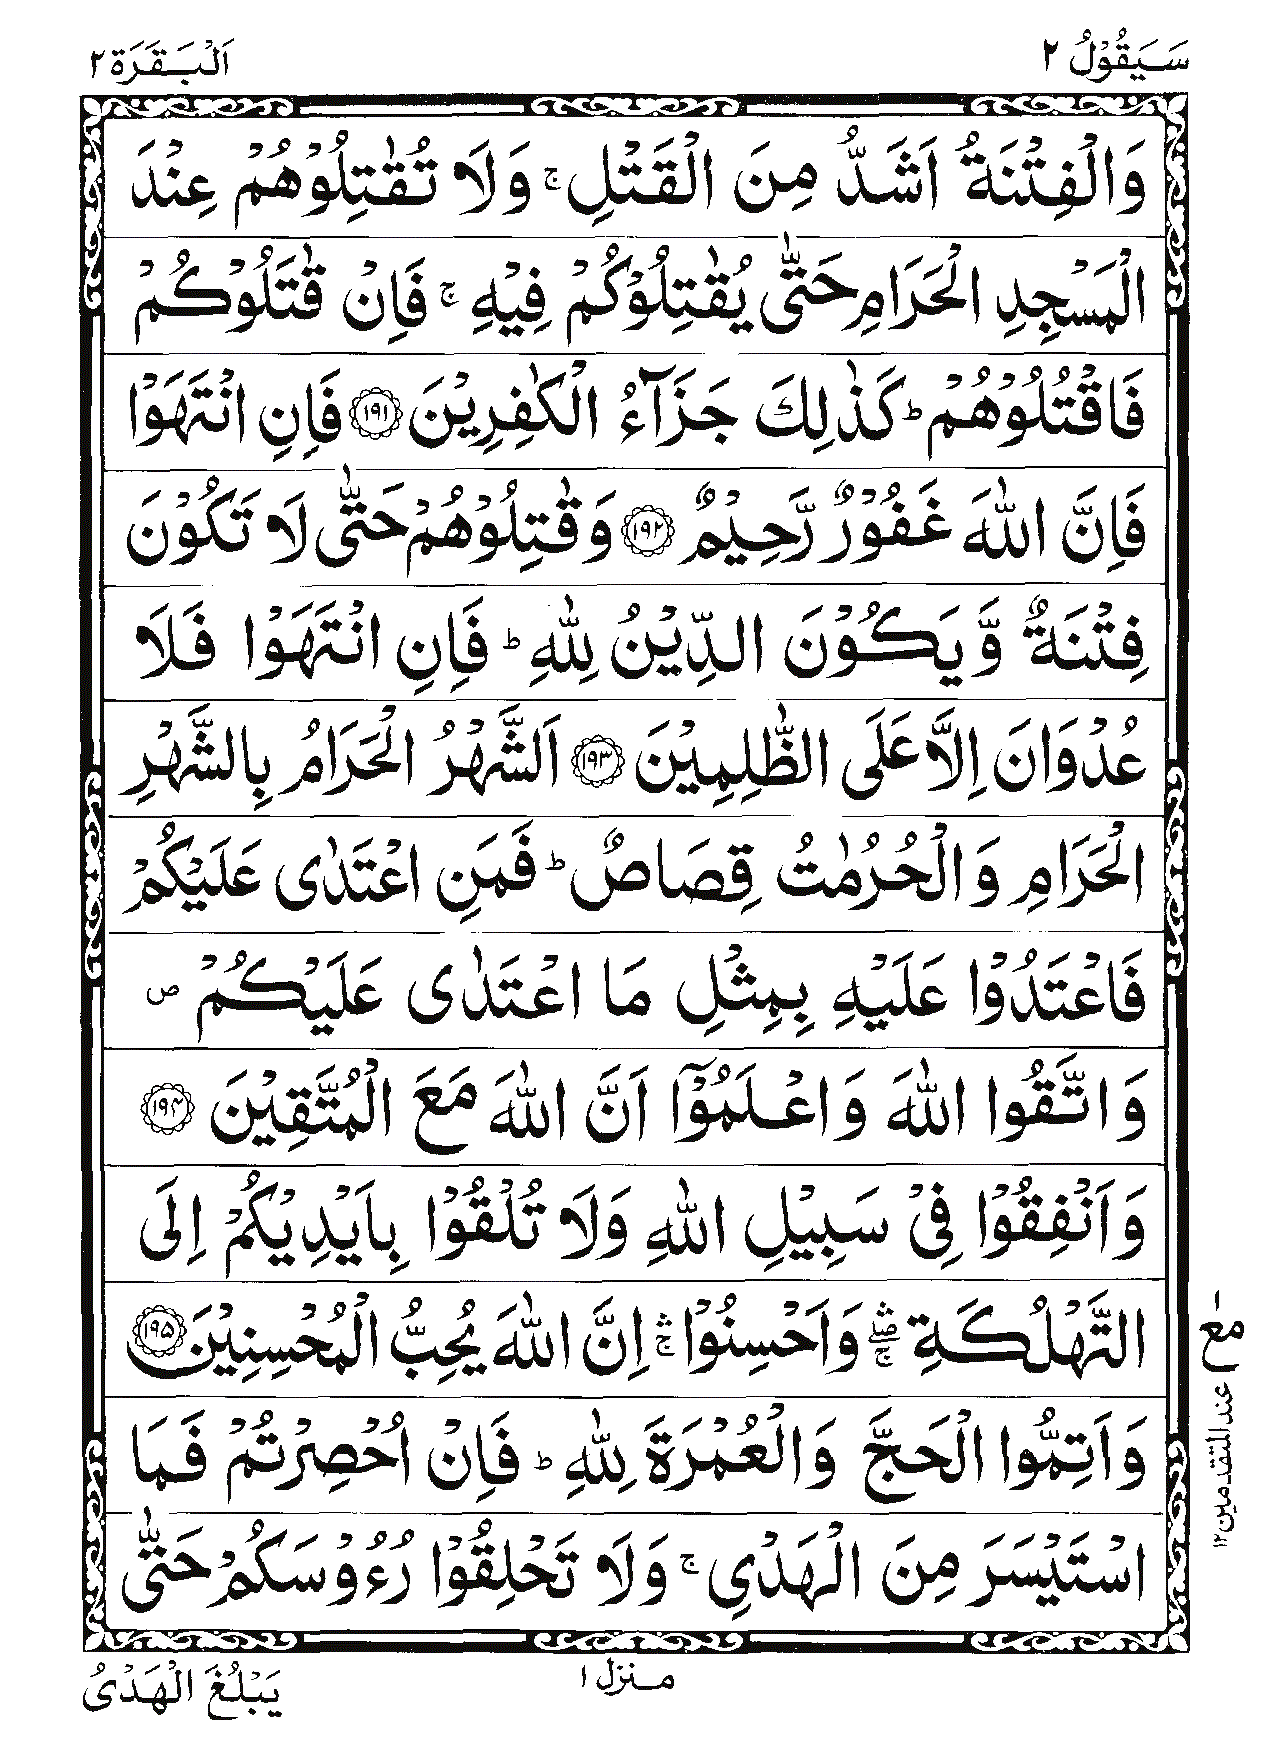 سَيَقُوْلُ ٢
اَلْبَقَرَة ٢
وَالْفِتْنَةُ اَشَدُّ مِنَ الْقَتْلِ ۚ وَلَا تُقٰتِلُوْهُمْ عِنْدَ
الْمَسْجِدِ الْحَرَامِ حَتّٰى يُقٰتِلُوْكُمْ فِيْهِ ۚ فَاِنْ قٰتَلُوْكُمْ
فَاقْتُلُوْهُمْ ؕ كَذٰلِكَ جَزَآءُ الْكٰفِرِيْنَ ﴿١٩١﴾ فَاِنِ انْتَهَوْا
فَاِنَّ اللّٰهَ غَفُوْرٌ رَّحِيْمٌ ﴿١٩٢﴾ وَقٰتِلُوْهُمْ حَتّٰى لَا تَكُوْنَ
فِتْنَةٌ وَّيَكُوْنَ الدِّيْنُ لِلّٰهِ ؕ فَاِنِ انْتَهَوْا فَلَا
عُدْوَانَ اِلَّا عَلَى الظّٰلِمِيْنَ ﴿١٩٣﴾ اَلشَّهْرُ الْحَرَامُ بِالشَّهْرِ
الْحَرَامِ وَالْحُرُمٰتُ قِصَاصٌ ؕ فَمَنِ اعْتَدٰى عَلَيْكُمْ
فَاعْتَدُوْا عَلَيْهِ بِمِثْلِ مَا اعْتَدٰى عَلَيْكُمْ ص
وَاتَّقُوا اللّٰهَ وَاعْلَمُوْٓا اَنَّ اللّٰهَ مَعَ الْمُتَّقِيْنَ ﴿١٩٤﴾
وَاَنْفِقُوْا فِيْ سَبِيْلِ اللّٰهِ وَلَا تُلْقُوْا بِاَيْدِيْكُمْ اِلَى
التَّهْلُكَةِ ۛۖۚ وَاَحْسِنُوْا ۛۚ اِنَّ اللّٰهَ يُحِبُّ الْمُحْسِنِيْنَ ﴿١٩٥﴾
وَاَتِمُّوا الْحَجَّ وَالْعُمْرَةَ لِلّٰهِ ؕ فَاِنْ اُحْصِرْتُمْ فَمَا
اسْتَيْسَرَ مِنَ الْهَدْيِ ۚ وَلَا تَحْلِقُوْا رُءُوْسَكُمْ حَتّٰى
مع
عند المتقدمين ١٢
منزل ١
يَبْلُغَ الْهَدْىُ